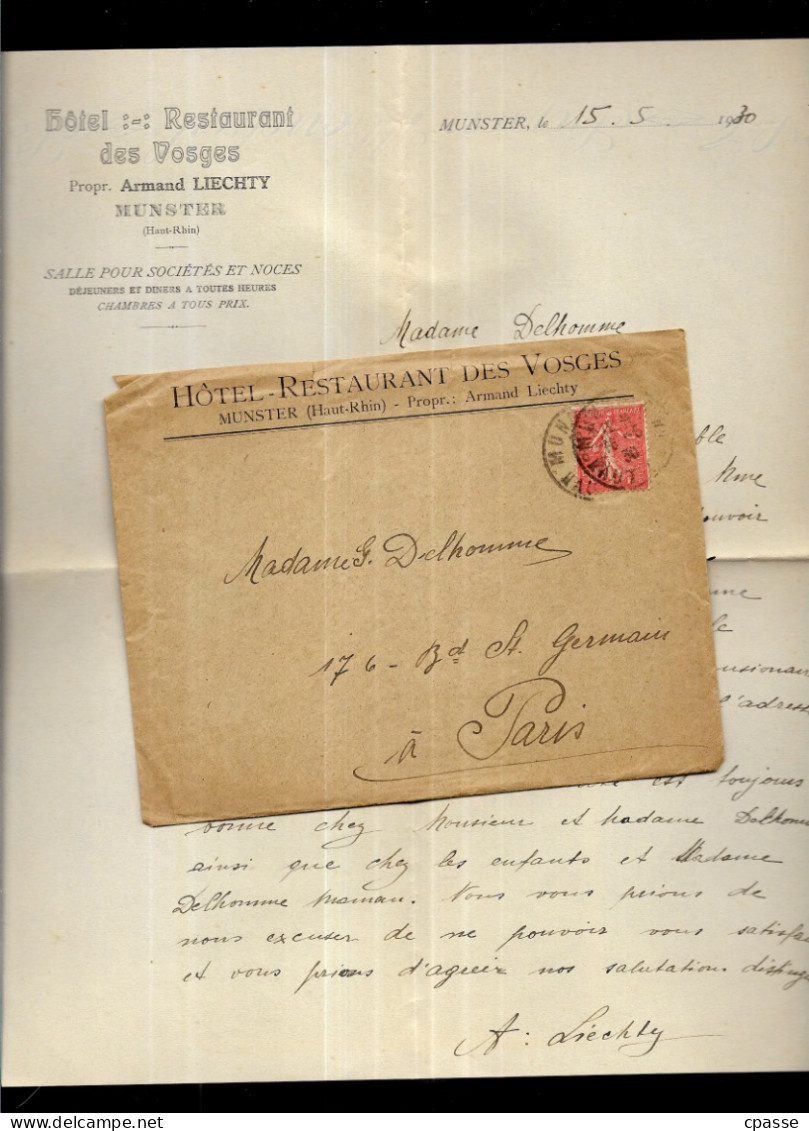 Hôtel :-: Restaurant
des Vosges
Propr. Armand LIECHTY
MUNSTER
(Haut-Rhin)
SALLE POUR SOCIÉTÉS ET NOCES
DÉJEUNERS ET DINERS A TOUTES HEURES
CHAMBRES A TOUS PRIX.
MUNSTER, le 15.5. 1930
Madame Delhomme
HÔTEL-RESTAURANT DES VOSGES
MUNSTER (Haut-Rhin) - Propr.: Armand Liechty
Madame G. Delhomme
176 - Bd St. Germain
à Paris
ble
Mme
ouvoir
le
l'adresse
est toujours
bonne chez Monsieur et Madame Delhomm
ainsi que chez les enfants et Madame
Delhomme maman. Nous vous prions de
nous excuser de ne pouvoir vous satisfai
et vous prions d'agréer nos salutations distingu
A. Liechty
cpasse